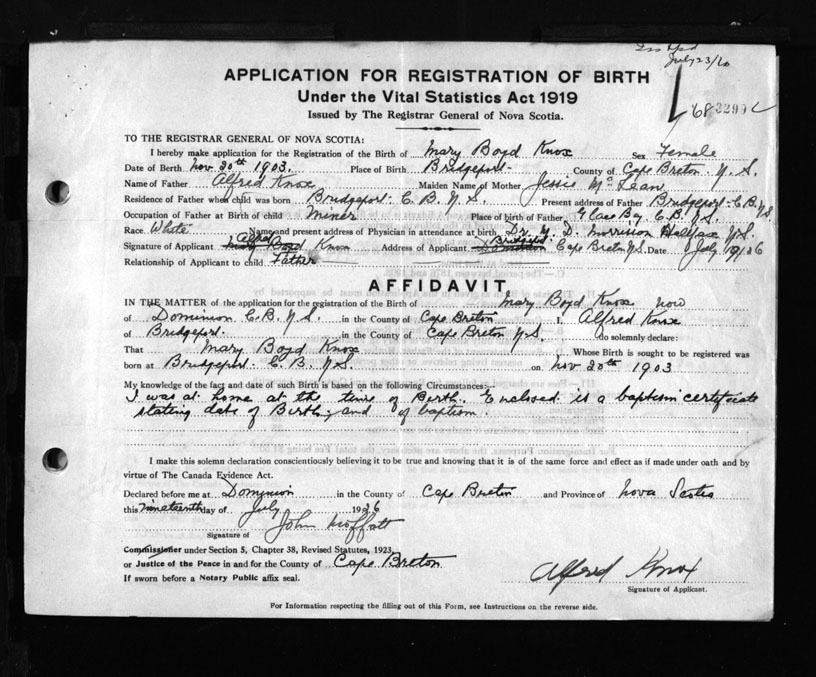 July 23/26
APPLICATION FOR REGISTRATION OF BIRTH
Under the Vital Statistics Act 1919
Issued by The Registrar General of Nova Scotia.
TO THE REGISTRAR GENERAL OF NOVA SCOTIA:
I hereby make application for the Registration of the Birth of Mary Boyd Knox Sex Female
Date of Birth Nov 20th 1903. Place of Birth Bridgeport County of Cape Breton N.S.
Name of Father Alfred Knox Maiden Name of Mother Jessie McLean
Residence of Father when child was born Bridgeport C.B. N.S. Present address of Father Bridgeport C.B. N.S.
Occupation of Father at Birth of child Miner Place of birth of Father Glace Bay C.B. N.S.
Race White Name and present address of Physician in attendance at birth Dr. M. D. Morrison Halifax N.S.
Signature of Applicant Alfred Knox Address of Applicant Bridgeport Cape Breton N.S. Date July 1926
Relationship of Applicant to child Father
AFFIDAVIT
IN THE MATTER of the application for the registration of the Birth of Mary Boyd Knox now
of Dominion C.B. N.S. in the County of Cape Breton I, Alfred Knox
of Bridgeport. in the County of Cape Breton N.S. do solemnly declare:
That Mary Boyd Knox Whose Birth is sought to be registered was
born at Bridgeport C.B. N.S. on Nov 20th 1903
My knowledge of the fact and date of such Birth is based on the following Circumstances:-
I was at home at the time of Birth. Enclosed is a baptism certificate
stating date of Birth and of baptism.
I make this solemn declaration conscientiously believing it to be true and knowing that it is of the same force and effect as if made under oath and by
virtue of The Canada Evidence Act.
Declared before me at Dominion in the County of Cape Breton and Province of Nova Scotia
this nineteenth day of July 1926
John Moffatt
Signature of
Commissioner under Section 5, Chapter 38, Revised Statutes, 1923,
or Justice of the Peace in and for the County of Cape Breton
If sworn before a Notary Public affix seal.
Alfred Knox
Signature of Applicant.
For Information respecting the filling out of this Form, see Instructions on the reverse side.